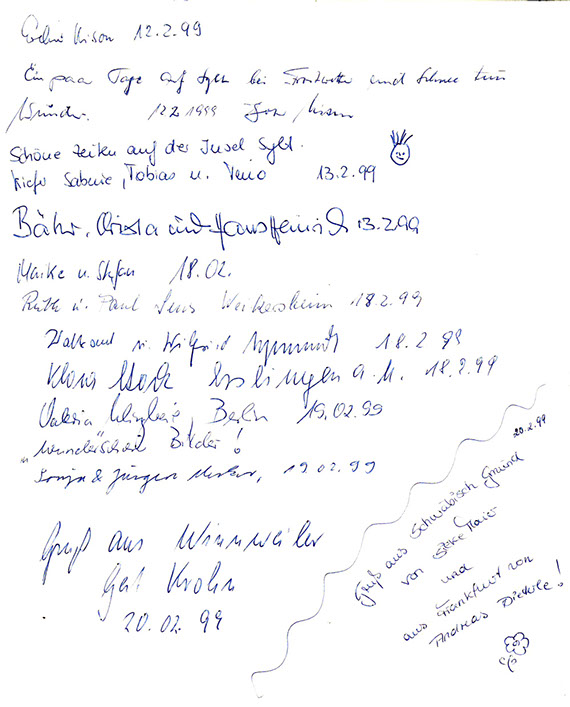 12.2.99
Ein paar Tage auf Sylt bei Frostwetter und Schnee tun
Wunder. 12.2.1999
Schöne Zeiten auf der Insel Sylt.
Kiefer Sabine, Tobias u. 13.2.99
Bähr, Christa und Hans Heinrich 13.2.99
Maike u. Stefan 18.02.
Ruth u. Paul Weikersheim 18.2.99
Waltraud u. Wilfried 18.2.99
Klara Esslingen a. N. 18.2.99
Valeria Berlin 19.02.99
"wunderschöne Bilder!
Sonja & Jürgen 19.02.99
Gruß aus Winnweiler
Gert Krohn
20.02.99
20.2.99
Gruß aus Schwäbisch Gmünd
von Maier
und
aus Frankfurt von
Andreas !